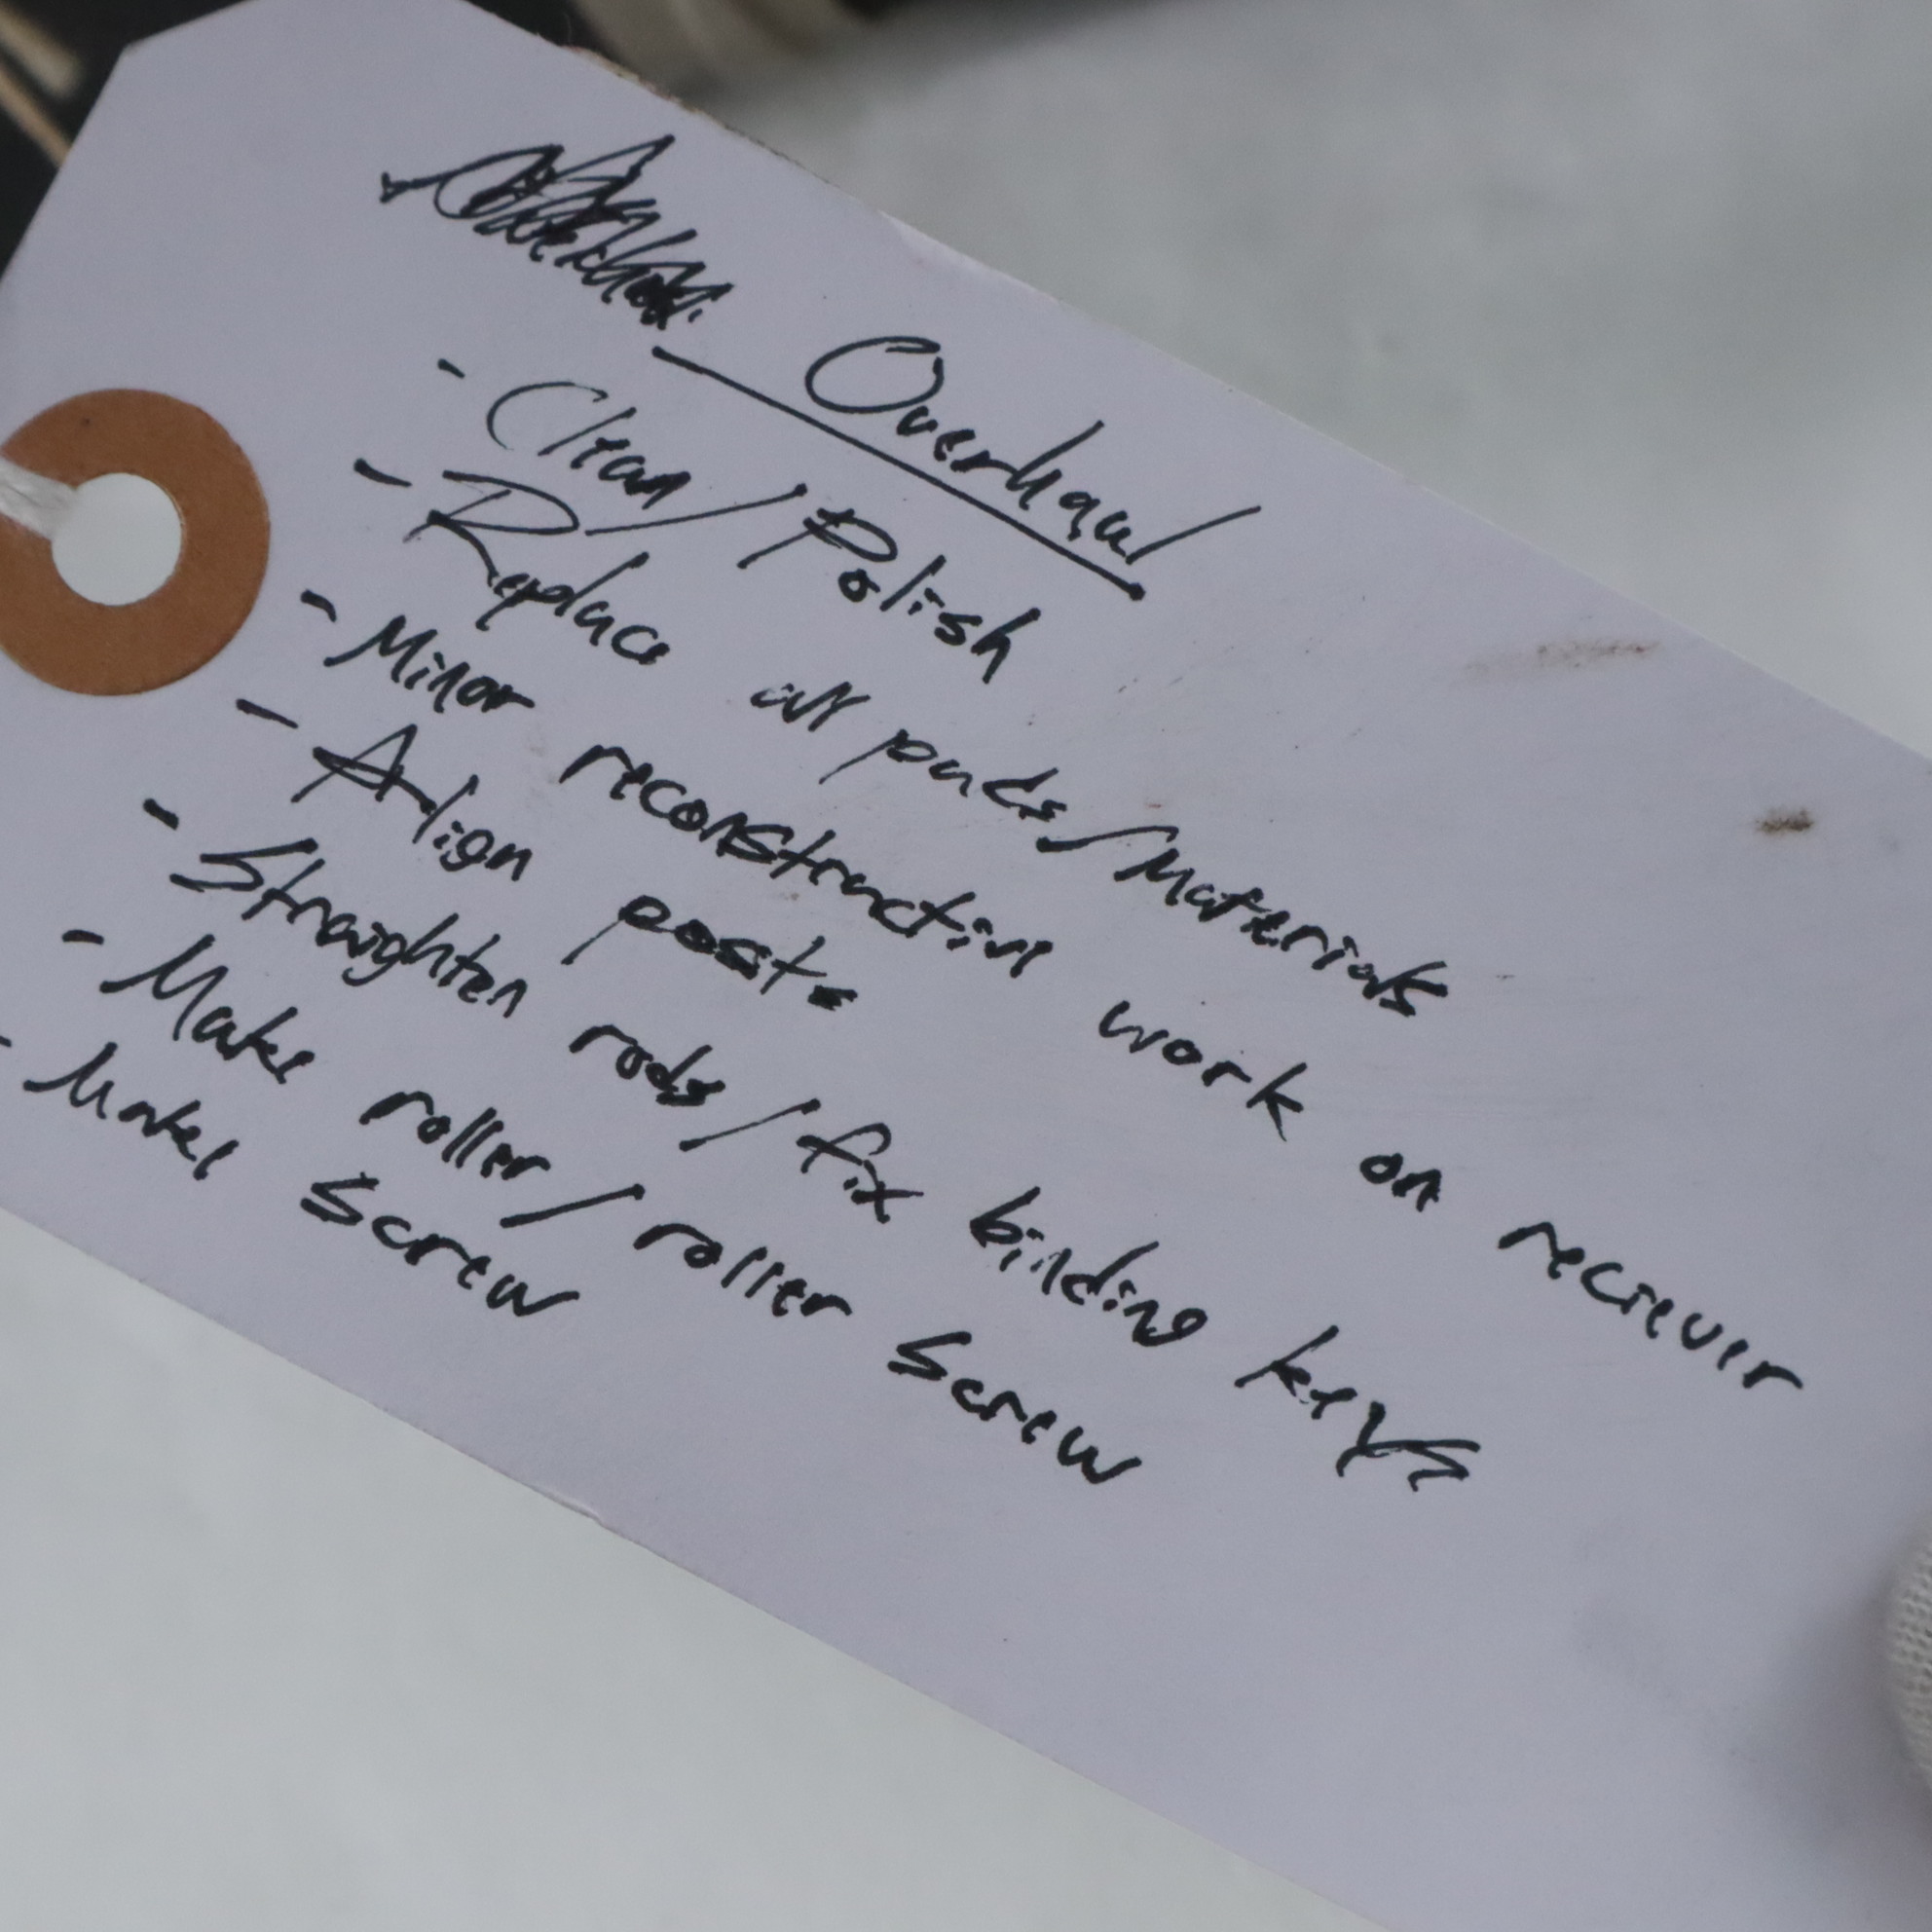 Overhaul
- Clean/Polish
- Replace all pads/Materials
- Minor reconstruction work on reciever
- Align posts
- Straighten rods/fix binding keys
- Make roller/roller screw
- Make screw